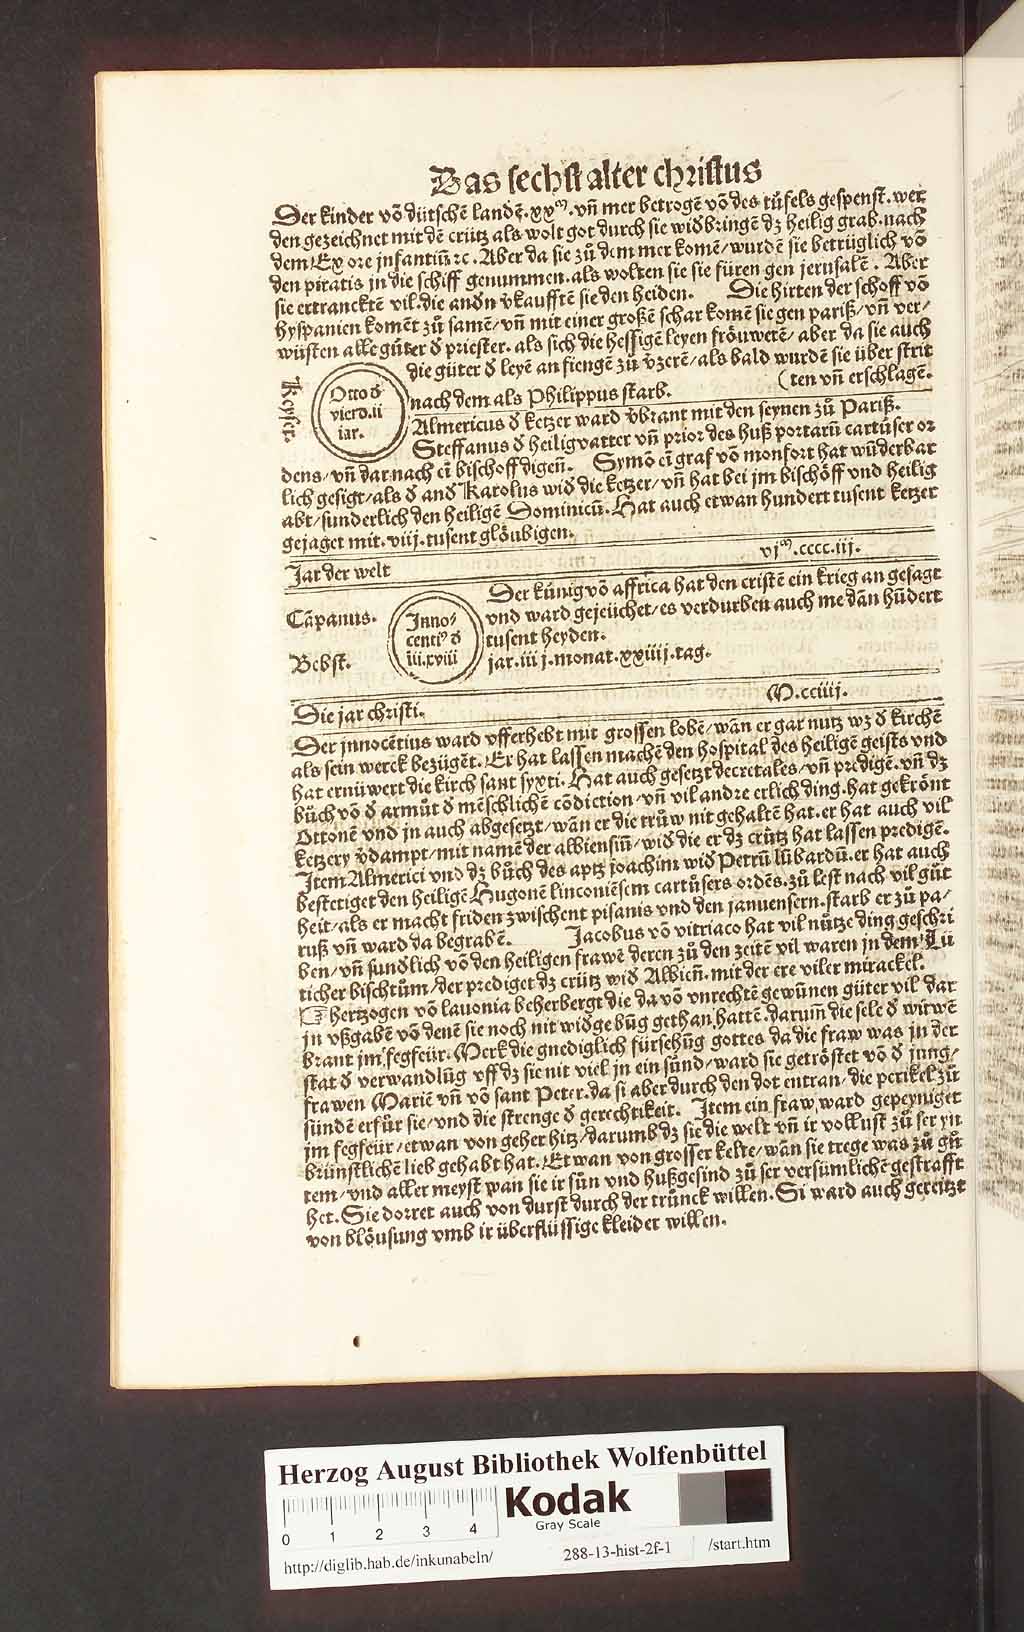 Das sechst alter christus
Der kinder võ dütschē landē.xxᵐ.vñ mer betrogē võ des tüfels gespenst.wer
den gezeichnet mit dē crütz als wolt got durch sie widbringē dz heilig grab.nach
dem Ex ore infantiū ꝛc. Aber da sie zů dem mer komē/wurdē sie betrüglich võ
den piratis jn die schiff genummen.als wolten sie sie füren gen jerusalē. Aber
sie ertrancktē vil.die andn ṽkaufftē sie den heiden. Die hirten der schoff võ
hyspanien komēt zů samē/vñ mit einer großē schar komē sie gen pariß/vñ ver/
wüsten alle gůter ď priester.als sich die hessigē leyen fröuwerē/aber da sie auch
die güter ď leyē an fiengē zů ṽzerē/als bald wurdē sie über strit
(ten vñ erschlagē.
Keyser.
Otto ď
vierd.ii
iar.
nach dem als Philippus starb.
Almericus ď ketzer ward ṽbrant mit den seynen zů Pariß.
Steffanus ď heiligvatter vñ prior des huß portarū cartüser or
dens/vñ dar nach eī bischoff digeñ. Symō eī graf võ monfort hat wūderbar
lich gesigt/als ď and Karolus wid die ketzer/vñ hat bei jm bischöff vnd heilig
abt/sunderlich den heiligē Dominicū. Hat auch etwan hundert tusent ketzer
gejaget mit.viij.tusent glöubigen.
Jar der welt
vjᵐ.cccc.iij.
Cāpanus.
Bebst.
Inno/
centiꝰ ď
iii.xviii
Der künig võ affrica hat den cristē ein krieg an gesagt
vnd ward gejeüchet/es verdurben auch me dān hūdert
tusent heyden.
jar.iiij.monat.xxiiij.tag.
Die jar christi.
M.cciiij.
Der jnnocētius ward vfferhebt mit grossen lobē/wān er gar nutz wz ď kirchē
als sein werck bezügēt. Er hat lassen machē den hospital des heiligē geists vnd
hat ernüwert die kirch sant syxti. Hat auch gesetzt decretales/vñ predigē.vñ dz
bůch võ ď armůt ď mēschlichē cōdiction/vñ vil andre erlich ding.hat gekrönt
Ottonē vnd jn auch abgesetzt/wān er die trüw nit gehaltē hat.er hat auch vil
ketzery ṽdampt/mit namē der albiensiū/wid die er dz crütz hat lassen predigē.
Item Almerici vnd dz bůch des aptz joachim wid Petrū lūbardū.er hat auch
bestetiget den heiligē Hugonē linconiēsem cartüsers ordēs.zů lest nach vil gůt
heit/als er macht friden zwischent pisanis vnd den januensern.starb er zů pa/
ruß vñ ward da begrabē. Jacobus võ vitriaco hat vil nütze ding geschri
ben/vñ sundlich võ den heiligen frawē deren zů den zeitē vil waren jn dem Lü
ticher bischtům/der prediget dz crütz wid Albiēñ.mit der ere viler mirackel.
☞ hertzogen võ lauonia beherbergt die da võ vnrechtē gewūnen güter vil dar
jn vßgabē võ denē sie noch nit widgebūg gethan hattē.darum̃ die sele ď witwē
brant jm fegfeür. Merk die gnediglich fürsehūg gottes da die fraw was jn der
stat ď verwandlūg vff dz sie nit viel jn ein sünd/ward sie getröstet võ ď jung/
frawen Mariē vñ võ sant Peter.da si aber durch den dot entran/die perikel zů
sündē erfůr sie/vnd die strenge ď gerechtikeit. Item ein fraw ward gepeyniget
jm fegfeür/etwan von geher hitz/darumb dz sie die welt vñ ir vollust zů ser yn
brünstlichē lieb gehabt hat. Etwan von grosser kelte/wān sie trege was zů gů
tem/vnd aller meyst wan sie ir sūn vnd hußgesind zů ser versümlichē gestrafft
het. Sie dorret auch von durst durch der trünck willen. Si ward auch gereitzt
von blöusung vmb ir überflüssige kleider willen.
Herzog August Bibliothek Wolfenbüttel
Kodak
Gray Scale
0 1 2 3 4
http://diglib.hab.de/inkunabeln/ 288-13-hist-2f-1 /start.htm